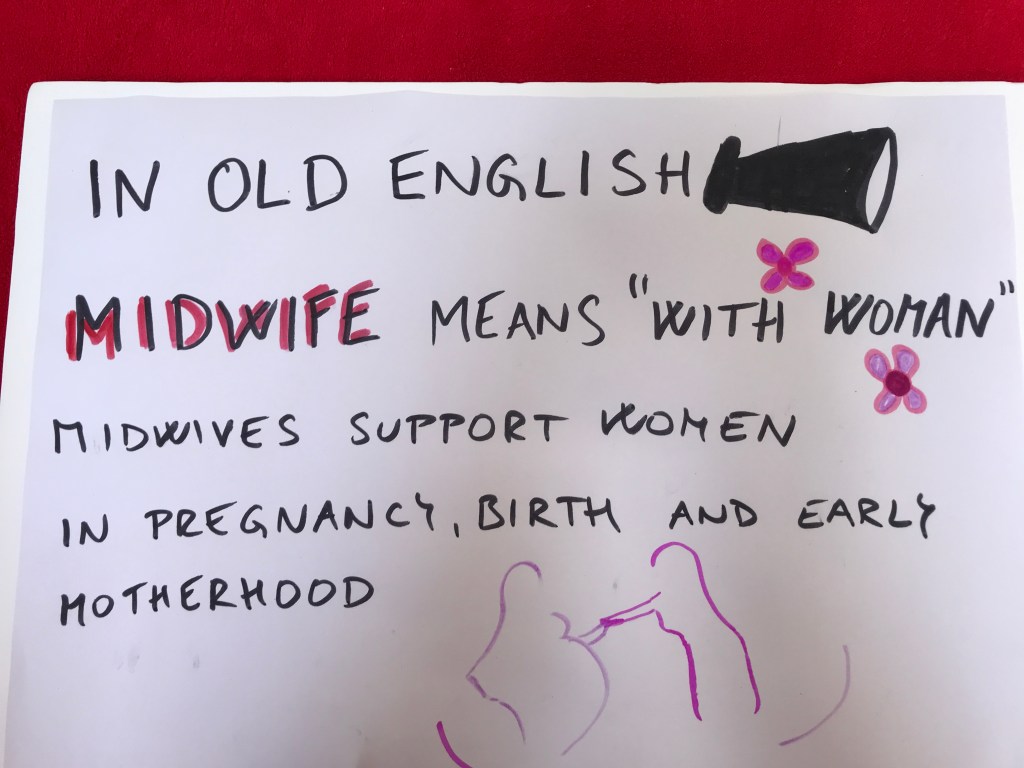 IN OLD ENGLISH
MIDWIFE MEANS "WITH WOMAN"
MIDWIVES SUPPORT WOMEN
IN PREGNANCY, BIRTH AND EARLY
MOTHERHOOD